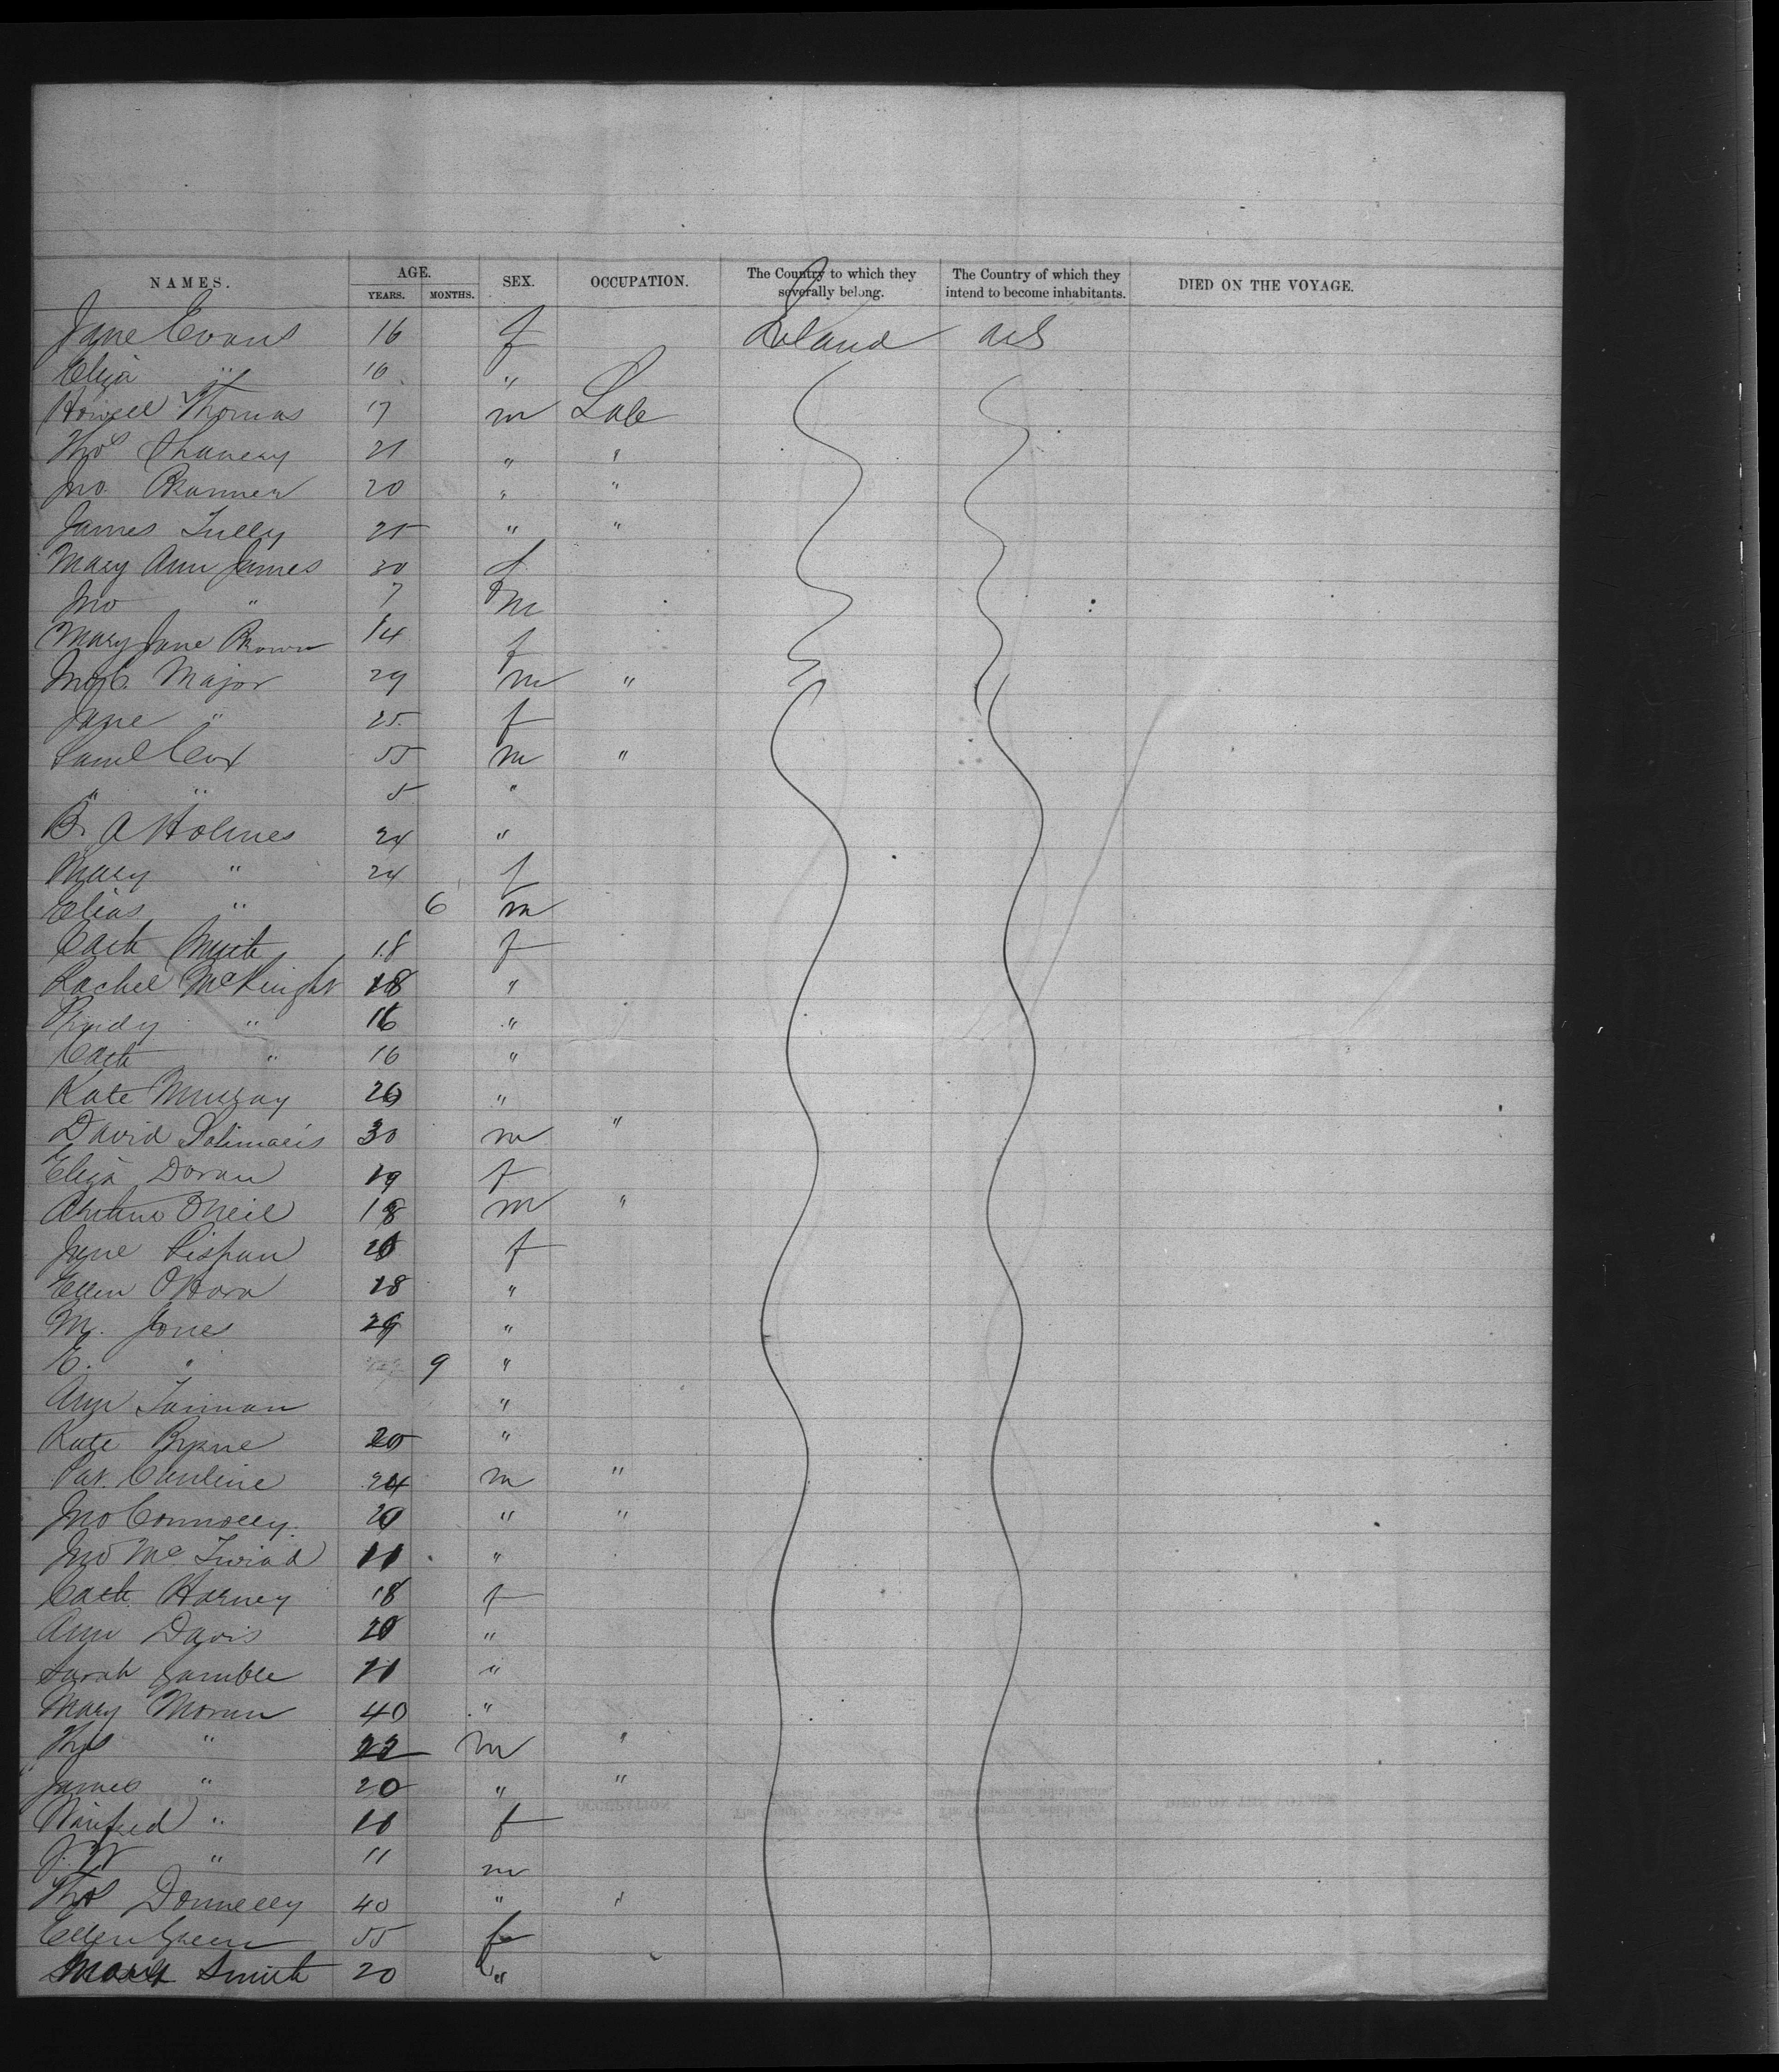 NAMES. AGE. SEX. OCCUPATION. The Country to which they severally belong. The Country of which they intend to become inhabitants. DIED ON THE VOYAGE.
YEARS. MONTHS.
Jane Evans 16 f Ireland US
Eliza " 10 "
Howell Thomas 17 m Lab
Thos 21 " "
Jno 20 " "
James Tully 25 " "
Mary Ann James 30 f
Jno " 7 m
Mary Jane Brown 14 f
Major 29 m "
Jane " 25 f
Saml Cox 55 m "
" " 5 "
B. A Holmes 24 "
Mary " 24 f
Elias " 6 m
Cath 18 f
Rachel McKnight 18 "
" 16 "
Cath " 16 "
Kate Murray 26 "
David 30 m "
Eliza Doran 19 f
O'Neil 18 m "
Jane f
Ellen O'Hara 18 "
M. Jones 29 "
E. " 9 "
Ann "
Kate Byrne 20 "
Pat. 24 m "
Jno Connolly. " "
Jno Mc 11 "
Cath Harney 18 f
Ann Davis 20 "
Sarah Gamble 11 "
Mary Moran 40 "
Thos " 22 m "
James " 20 " "
Winifred " f
J. W " 11 m
Thos Donnelly 40 " "
Ellen Green 55 f
Mary Smith 20 "